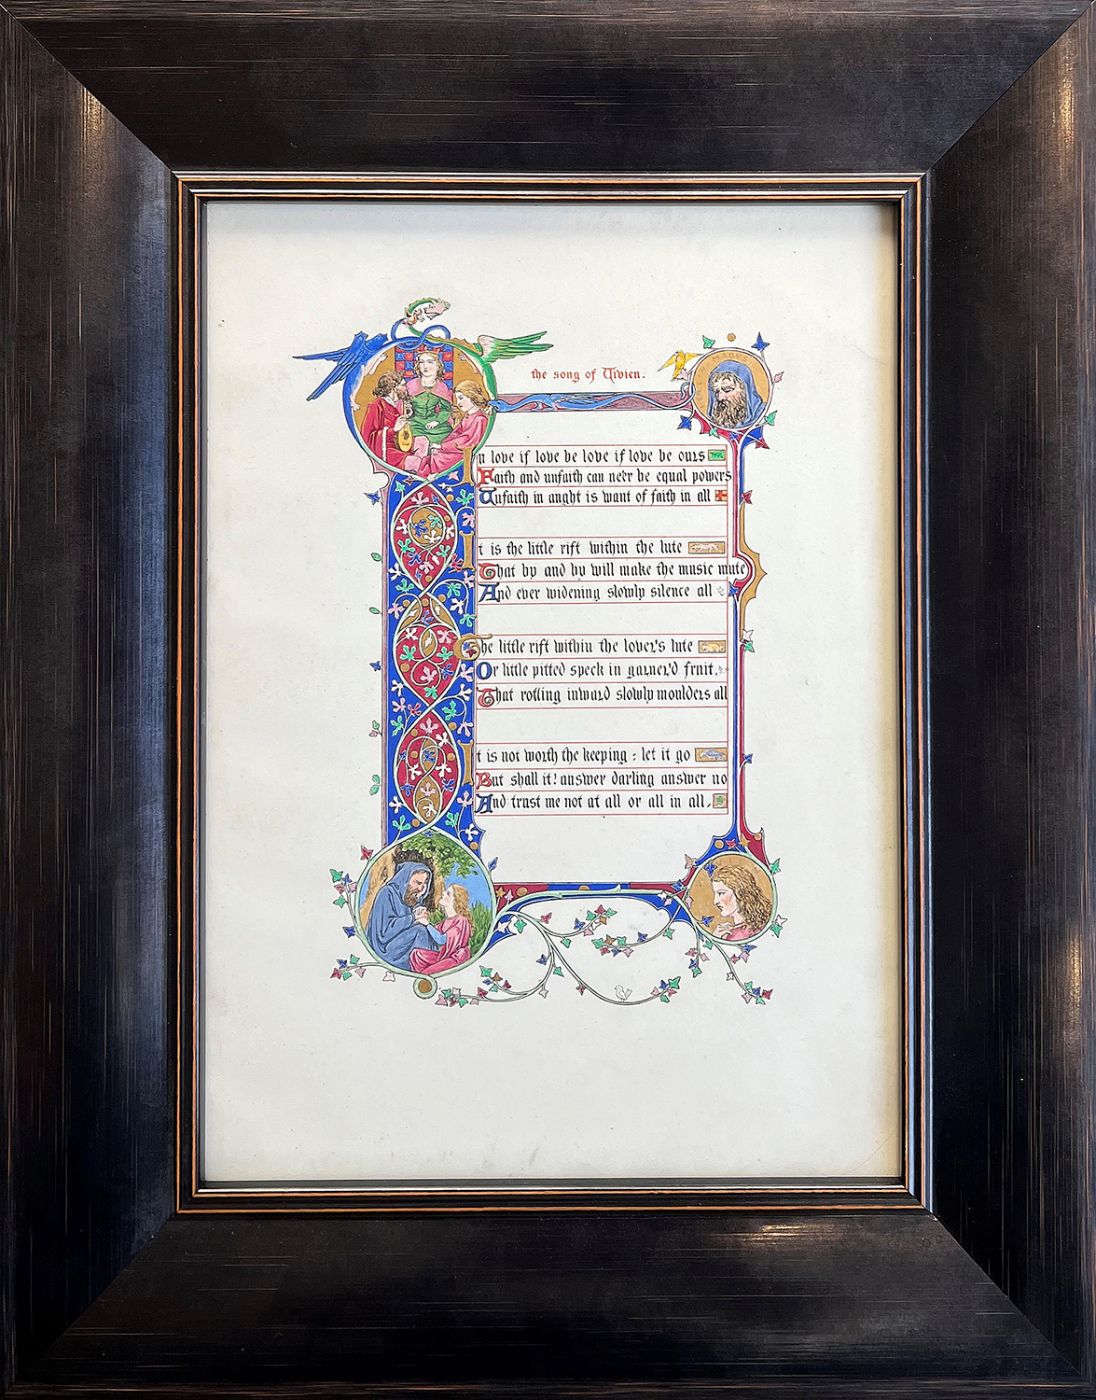 MAGVS
the song of Vivien.
In love if love be love if love be ours
Faith and unfaith can ne'er be equal powers
Unfaith in aught is want of faith in all
It is the little rift within the lute
That by and by will make the music mute
And ever widening slowly silence all
The little rift within the lover's lute
Or little pitted speck in garner'd fruit,
That rotting inward slowly moulders all
It is not worth the keeping : let it go
But shall it! answer darling answer no
And trust me not at all or all in all.